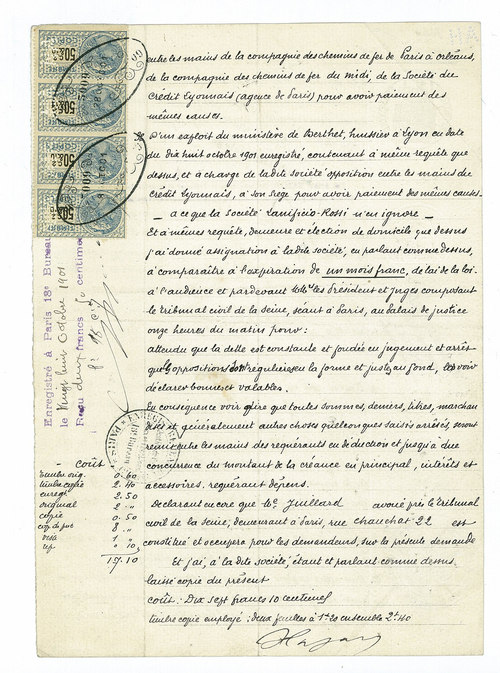 entre les mains de la compagnie des chemins de fer de Paris à orléans,
de la compagnie des chemins de fer du midi, de la Société du
Crédit Lyonnais (agence de Paris) pour avoir paiement des
mêmes causes.
D'un exploit du ministère de Berthet, huissier à Lyon en date
du dix huit octobre 1901 enregistré, contenant à même requête que
dessus, et à charge de la dite société opposition entre les mains du
Crédit Lyonnais, à son siège pour avoir paiement des mêmes causes -
_ a ce que la Société Lanificio-Rossi n'en ignore _
Et à mêmes requête, demeure et élection de domicile que dessus
j'ai donné assignation à la dite société, en parlant comme dessus,
à comparaître à l'expiration de un mois franc, delai de la loi.
à l'audience et pardevant MMrs les Président et Juges composant
le tribunal civil de la Seine, séant à Paris, au palais de justice
onze heures du matin pour:
attendu que la dette est constante et fondée en jugement et arrêt
que l'opposition est régulière en la forme et juste au fond, les voir
déclarer bonnes et valables.
En conséquence voir dire que toutes sommes, deniers, titres, marchan
dises et généralement autres choses quelconques saisies arrêtées, seront
remis entre les mains des requérants en déduction et jusqu'à due
concurrence du montant de la créance en principal, intérêts et
accessoires. requérant dépens.
Déclarant encore que Me Juillard avoué près le tribunal
civil de la Seine, demeurant à Paris, rue Chauchat 22 est
constitué et occupera pour les demandeurs, sur la présente demande
Et j'ai, à la dite société, étant et parlant comme dessus
laissé copie du présent
coût: Dix sept francs 10 centimes
timbre copie employé: deux feuilles à 1.20 ensemble 2.40
Enregistré à Paris 18e Bureau
le Vingt huit Octobre 1901
Reçu deux francs centimes
- Coût
timbre orig. 0.60
timbre copie 2.40
enregt 2.50
original 2 "
copie 0.50
cop de pces 8 "
visa 1 "
rep " 10
17.10
50c
50c
50c
50c